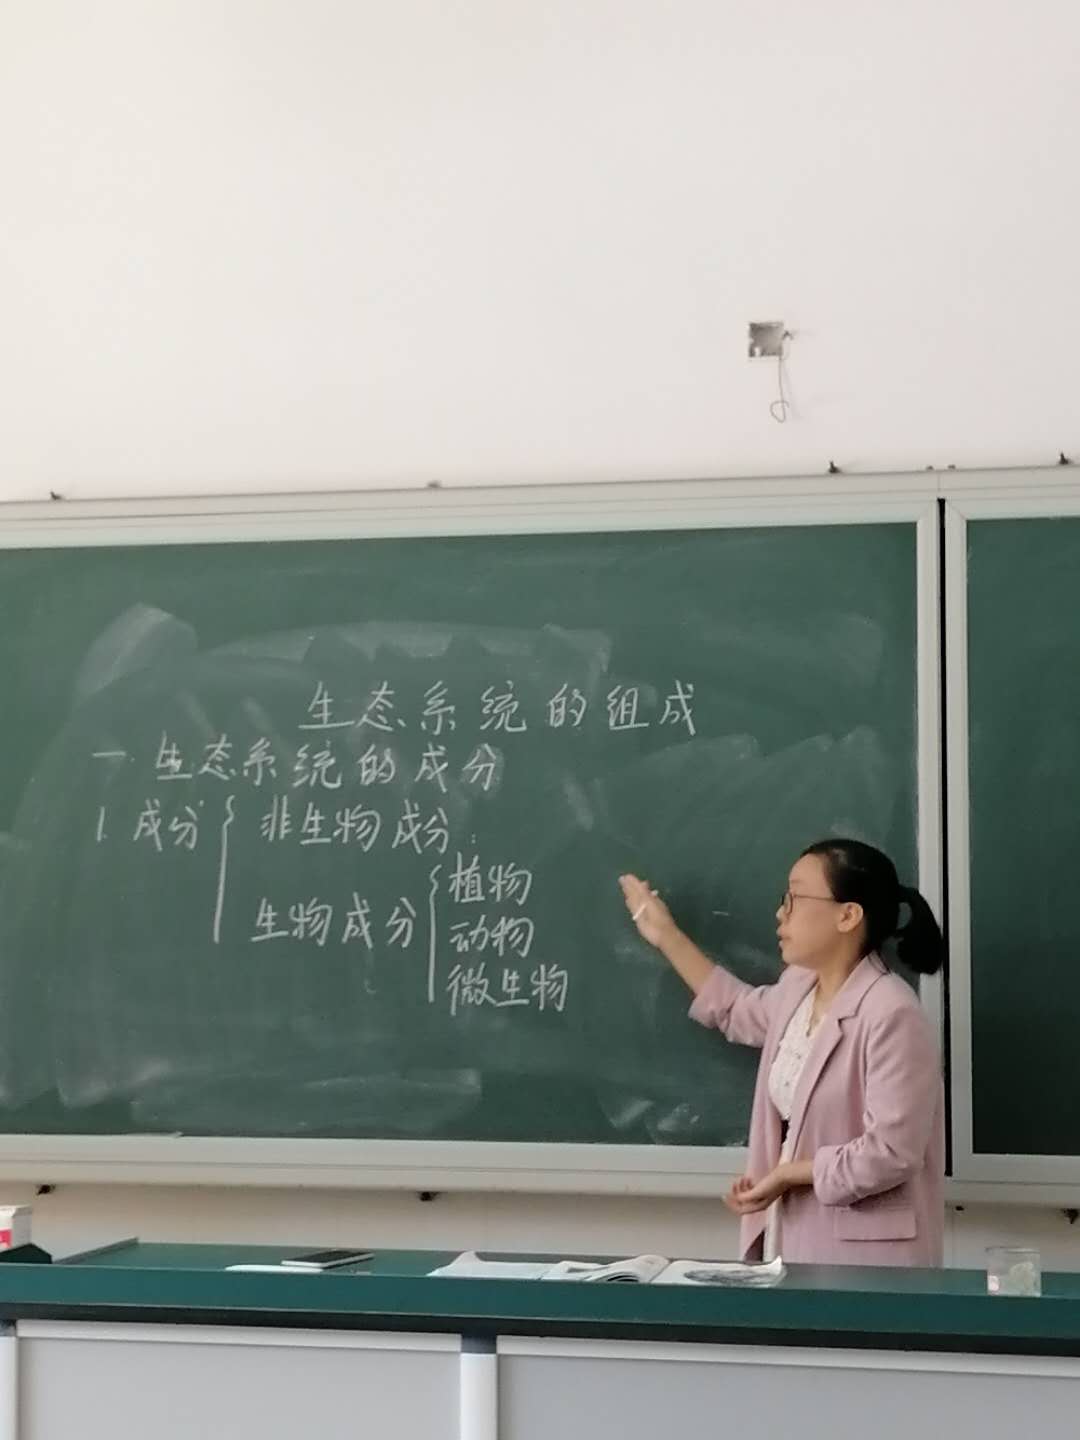 生态系统的组成
一.生态系统的成分
1.成分{非生物成分:
生物成分{植物
动物
微生物